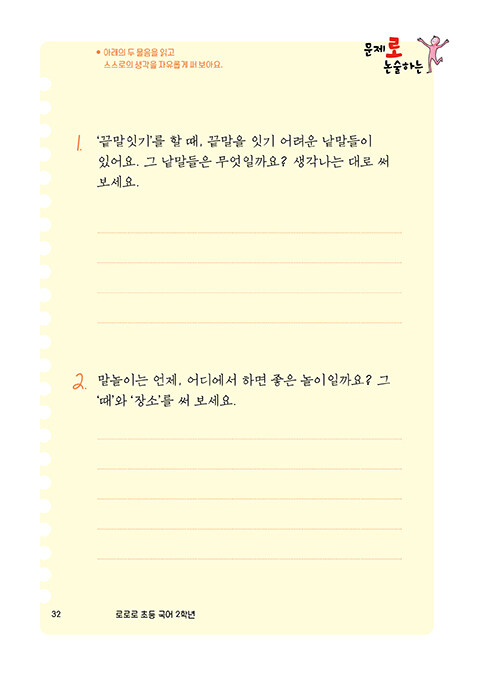 • 아래의 두 물음을 읽고
스스로의 생각을 자유롭게 써 보아요.
문제로
논술하는
1. ‘끝말잇기’를 할 때, 끝말을 잇기 어려운 낱말들이
있어요. 그 낱말들은 무엇일까요? 생각나는 대로 써
보세요.
2. 말놀이는 언제, 어디에서 하면 좋은 놀이일까요? 그
‘때’와 ‘장소’를 써 보세요.
32 로로로 초등 국어 2학년